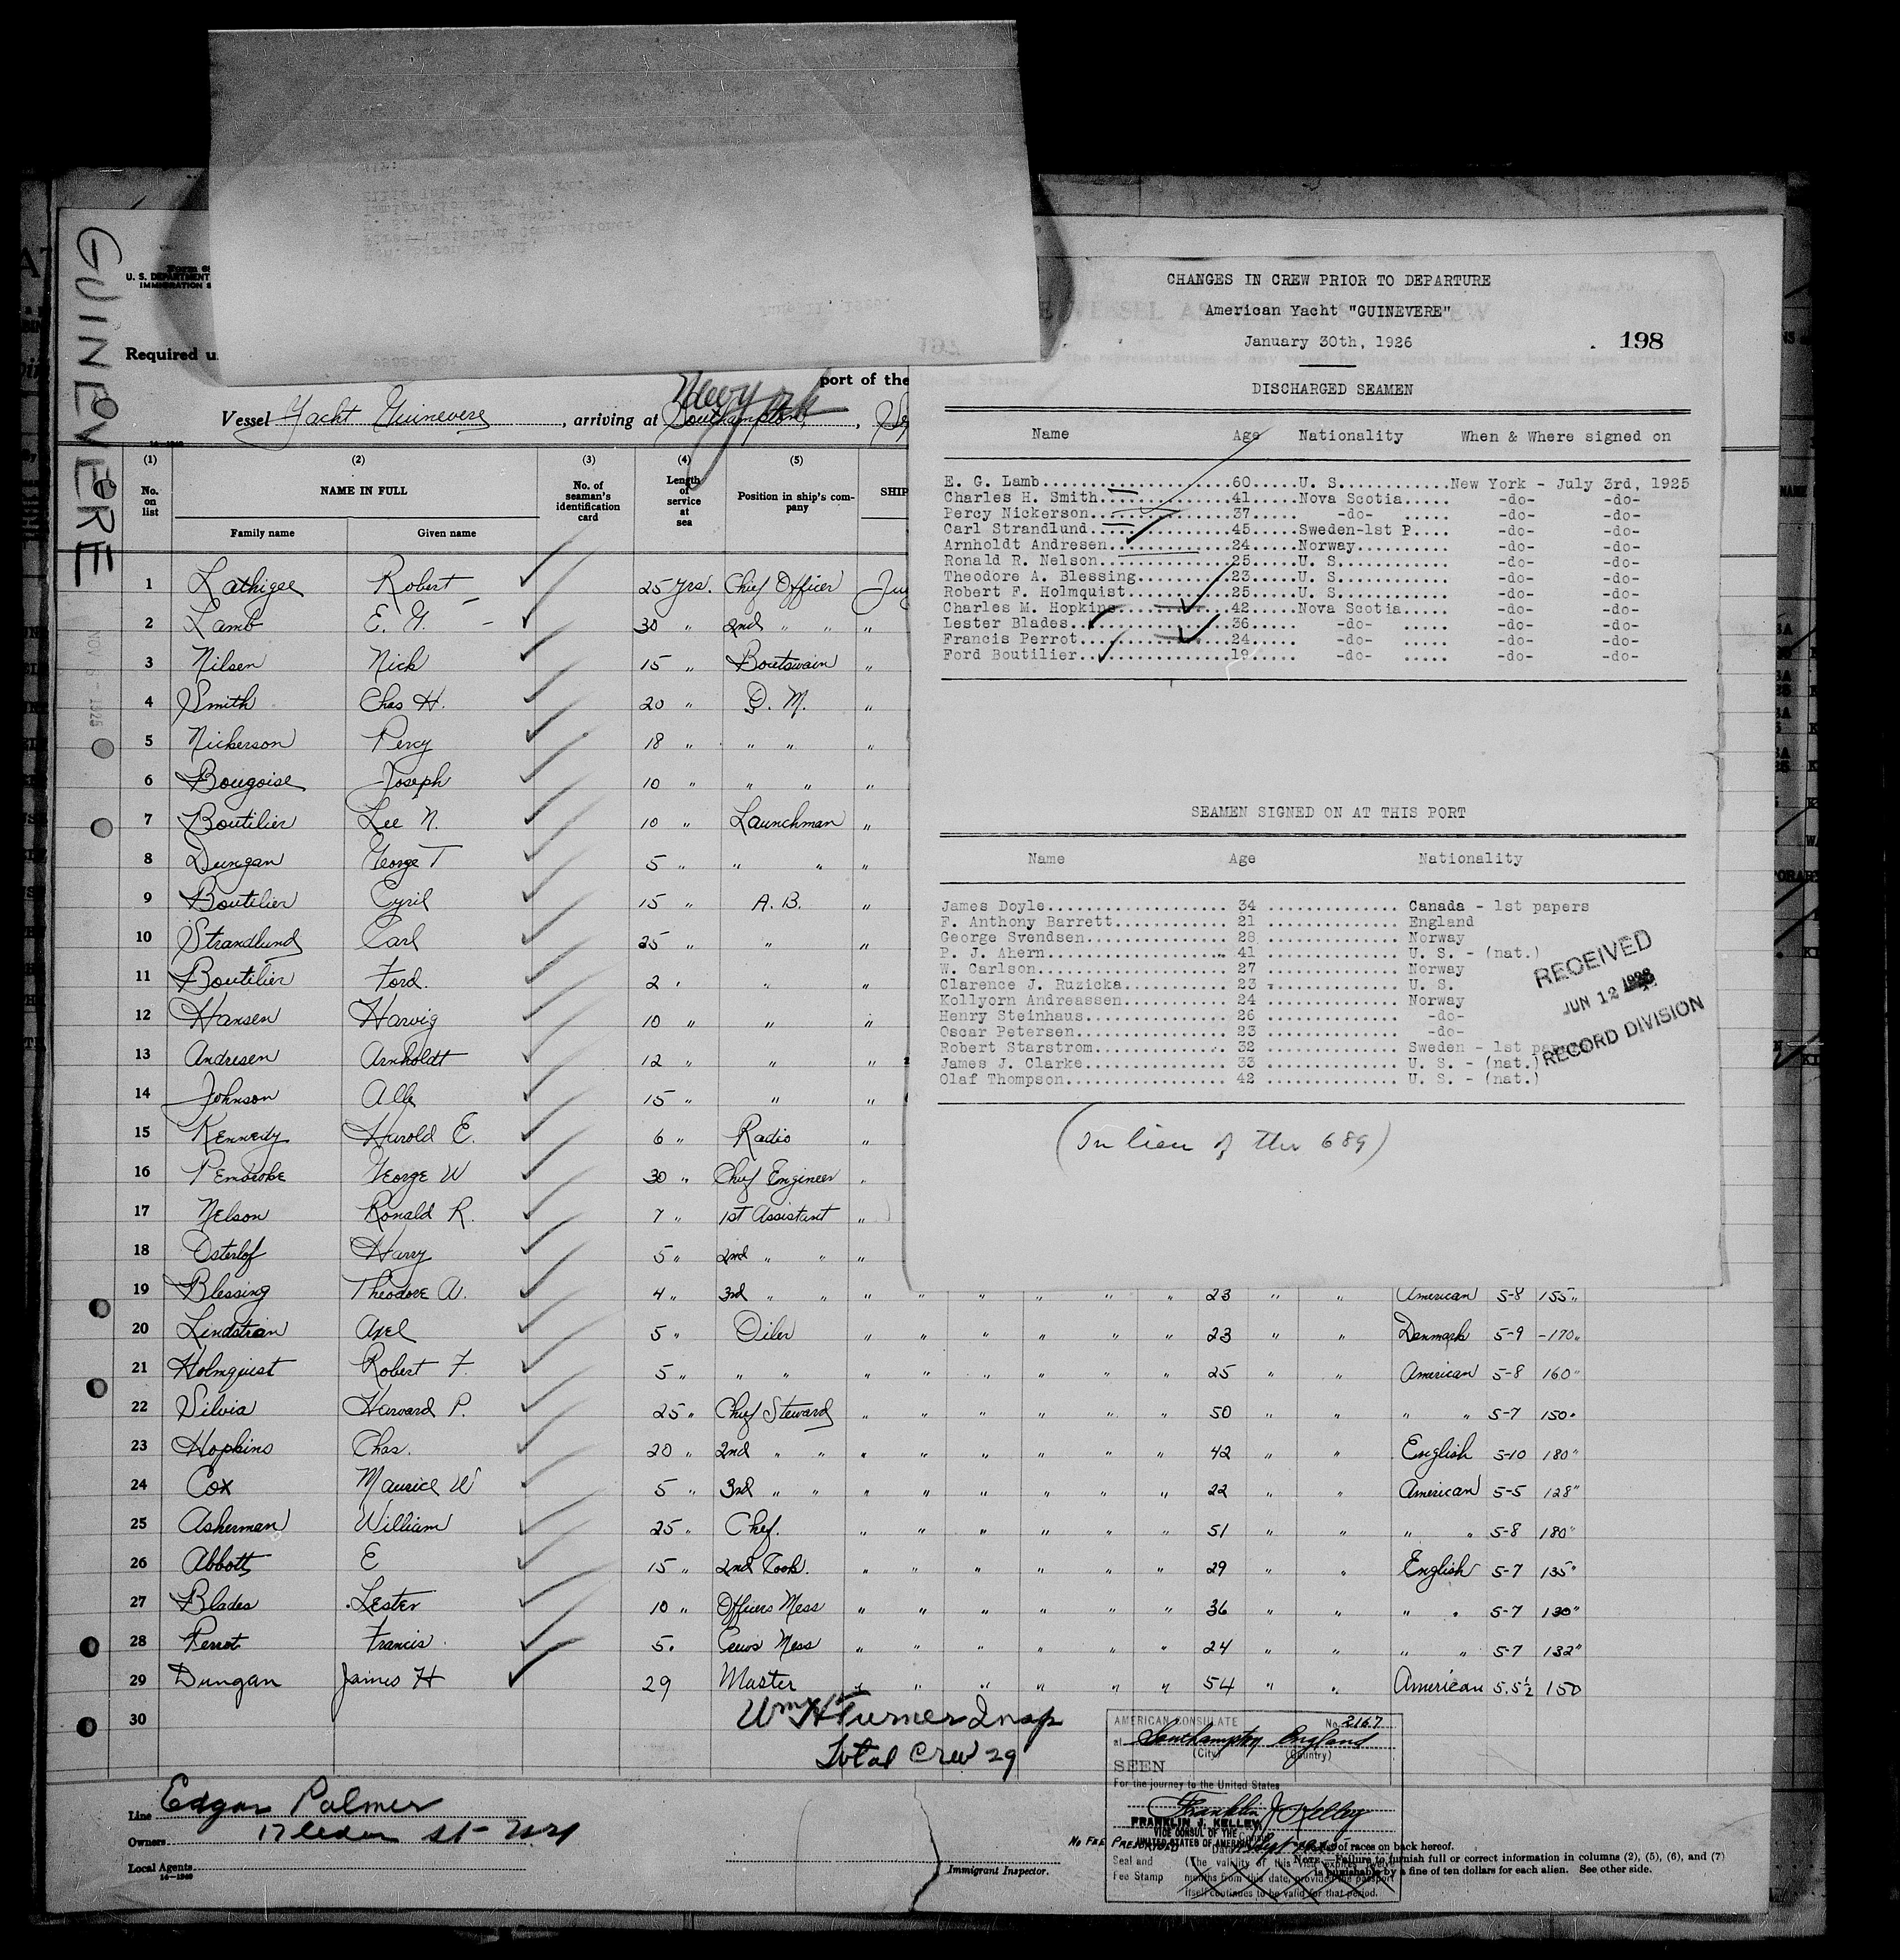 GUINEVERE
U. S. DEPARTMENT
Required u
port of the
New York
Vessel Yacht Guinevere, arriving at Southampton,
(1) (2) (3) (4) (5)
No. on list
NAME IN FULL
Family name
Given name
No. of seaman's identification card
Length of service at sea
Position in ship's company
SHIP
1 Lathigee Robert 25 yrs. Chief Officer
2 Lamb E. G. 30 " 2nd " "
3 Nilsen Nick 15 " Boatswain "
4 Smith Chas H. 20 " Q. M. "
5 Nickerson Percy 18 " " " "
6 Bougoise Joseph 10 " " " "
7 Boutilier Lee N. 10 " Launchman "
8 Dungan George T 5 " " " "
9 Boutilier Cyril 15 " A. B. "
10 Strandlund Carl 25 " " "
11 Boutilier Ford. 2 " " "
12 Hansen Harvig 10 " " "
13 Andresen Arnholdt 12 " " "
14 Johnson Alle 15 " " "
15 Kennedy Harold E. 6 " Radio "
16 Pembroke George W 30 " Chief Engineer "
17 Nelson Ronald R. 7 " 1st Assistant "
18 Osterlof Harry 5 " 2nd " " "
19 Blessing Theodore A. 4 " 3rd " " " " " " " " 23 " " American 5-8 155 "
20 Lindstran Axel 5 " Oiler " " " " " " 23 " " Denmark 5-9 -170 "
21 Holmquist Robert F. 5 " " " " " " " " " 25 " " American 5-8 160 "
22 Silvia Harvard P. 25 " Chief Steward " " " " " " 50 " " " " 5-7 150 "
23 Hopkins Chas. 20 " 2nd " " " " " " " " 42 " " English 5-10 180 "
24 Cox Maurice W 5 " 3rd " " " " " " " " 22 " " American 5-5 128 "
25 Asherman William 25 " Chef. " " " " " " 51 " " " " 5-8 180 "
26 Abbott E 15 " 2nd Cook. " " " " " " 29 " " English 5-7 135 "
27 Blades Lester 10 " Officers Mess " " " " " " 36 " " " " 5-7 130 "
28 Perrot Francis 5 " Crews Mess " " " " " " 24 " " " " 5-7 132 "
29 Dungan James H 29 Master " " " " " " 54 " " American 5.5½ 150
30
Wm H Turner Insp
Total Crew 29
Line Edgar Palmer
Owners
Local Agents
14—1040
Immigrant Inspector.
CHANGES IN CREW PRIOR TO DEPARTURE
American Yacht "GUINEVERE"
January 30th, 1926
198
DISCHARGED SEAMEN
Name Age Nationality When & Where signed on
E. G. Lamb 60 U. S. New York - July 3rd, 1925
Charles H. Smith 41 Nova Scotia -do- -do-
Percy Nickerson 37 -do- -do- -do-
Carl Strandlund 45 Sweden-1st P. -do- -do-
Arnholdt Andresen 24 Norway -do- -do-
Ronald R. Nelson 25 U. S. -do- -do-
Theodore A. Blessing 23 U. S. -do- -do-
Robert F. Holmquist 25 U. S. -do- -do-
Charles M. Hopkins 42 Nova Scotia -do- -do-
Lester Blades 36 -do- -do- -do-
Francis Perrot 24 -do- -do- -do-
Ford Boutilier 19 -do- -do- -do-
SEAMEN SIGNED ON AT THIS PORT
Name Age Nationality
James Doyle 34 Canada - 1st papers
F. Anthony Barrett 21 England
George Svendsen 28 Norway
P. J. Ahern 41 U. S. - (nat.)
W. Carlson 27 Norway
Clarence J. Ruzicka 23 U. S.
Kollyorn Andreassen 24 Norway
Henry Steinhaus 26 -do-
Oscar Petersen 23 -do-
Robert Starstrom 32 Sweden - 1st papers
James J. Clarke 33 U. S. - (nat.)
Olaf Thompson 42 U. S. - (nat.)
RECEIVED
JUN 12 1926
RECORD DIVISION
(In lieu of the 689)
AMERICAN CONSULATE No. 2167
at Southampton England
(City) (Country)
SEEN
For the journey to the United States
Franklin J. Kelley
FRANKLIN J. KELLEY
VICE CONSUL OF THE
UNITED STATES OF AMERICA
No FEE PRESCRIBED
Seal and Fee Stamp
(The validity of this visa expires twelve months from this date, provided the passport itself continues to be valid for that period.
of races on back hereof.
NOTE.—Failure to furnish full or correct information in columns (2), (5), (6), and (7)
is punishable by a fine of ten dollars for each alien. See other side.